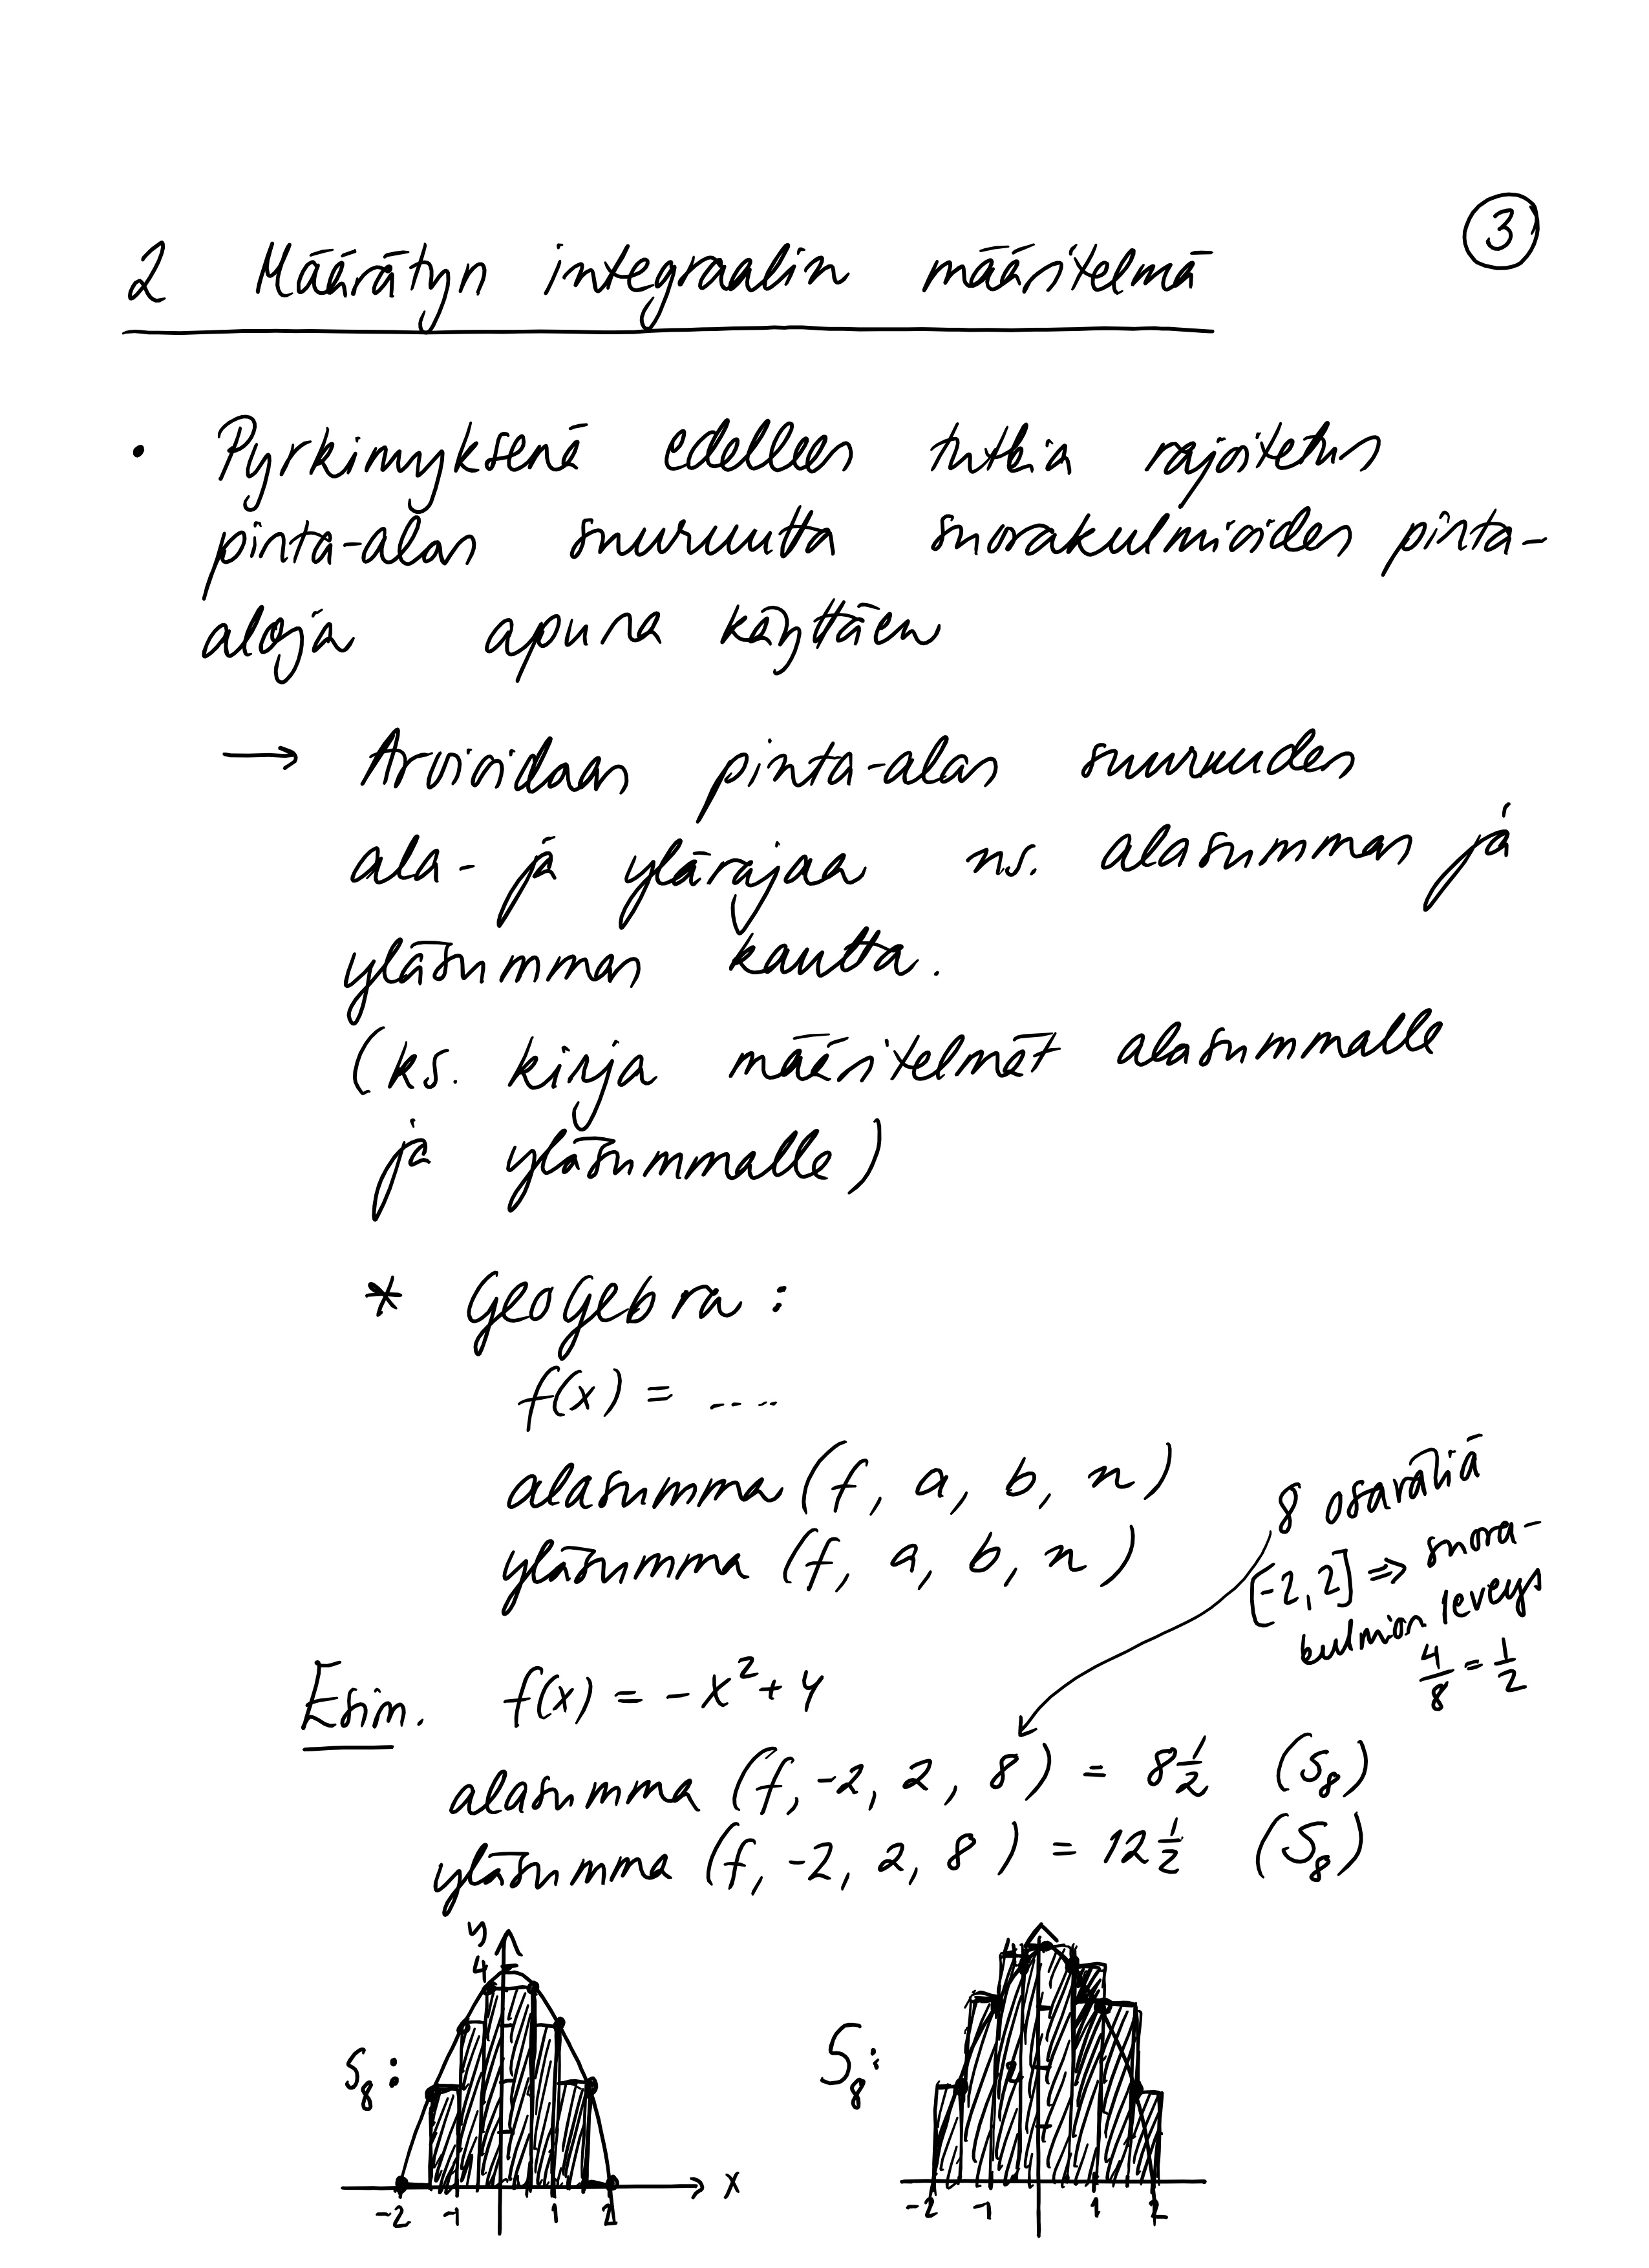 3
2 Määrätyn integraalin määritelmä
• Pyrkimyksenä edelleen tutkia rajoitetun
pinta-alan suuruutta suorakulmioiden pinta-
aloja apuna käyttäen
→ Arvioidaan pinta-alan suuruuden
ala- ja ylärajaa ns. alasumman ja
yläsumman kautta.
(ks. kirja määritelmät alasummalle
ja yläsummalle)
* Geogebra :
f(x) = ....
alasumma (f, a, b, n)
yläsumma (f, a, b, n)
8 osaväliä
[-2, 2] ⇒ suora-
kulmion leveys
4/8 = 1/2
Esim. f(x) = -x² + 4
alasumma (f, -2, 2, 8) = 8 1/2 (s₈)
yläsumma (f, -2, 2, 8) = 12 1/2 (S₈)
y
4
s₈:
-2 -1 1 2 x
S₈:
2
-2 -1 1 2